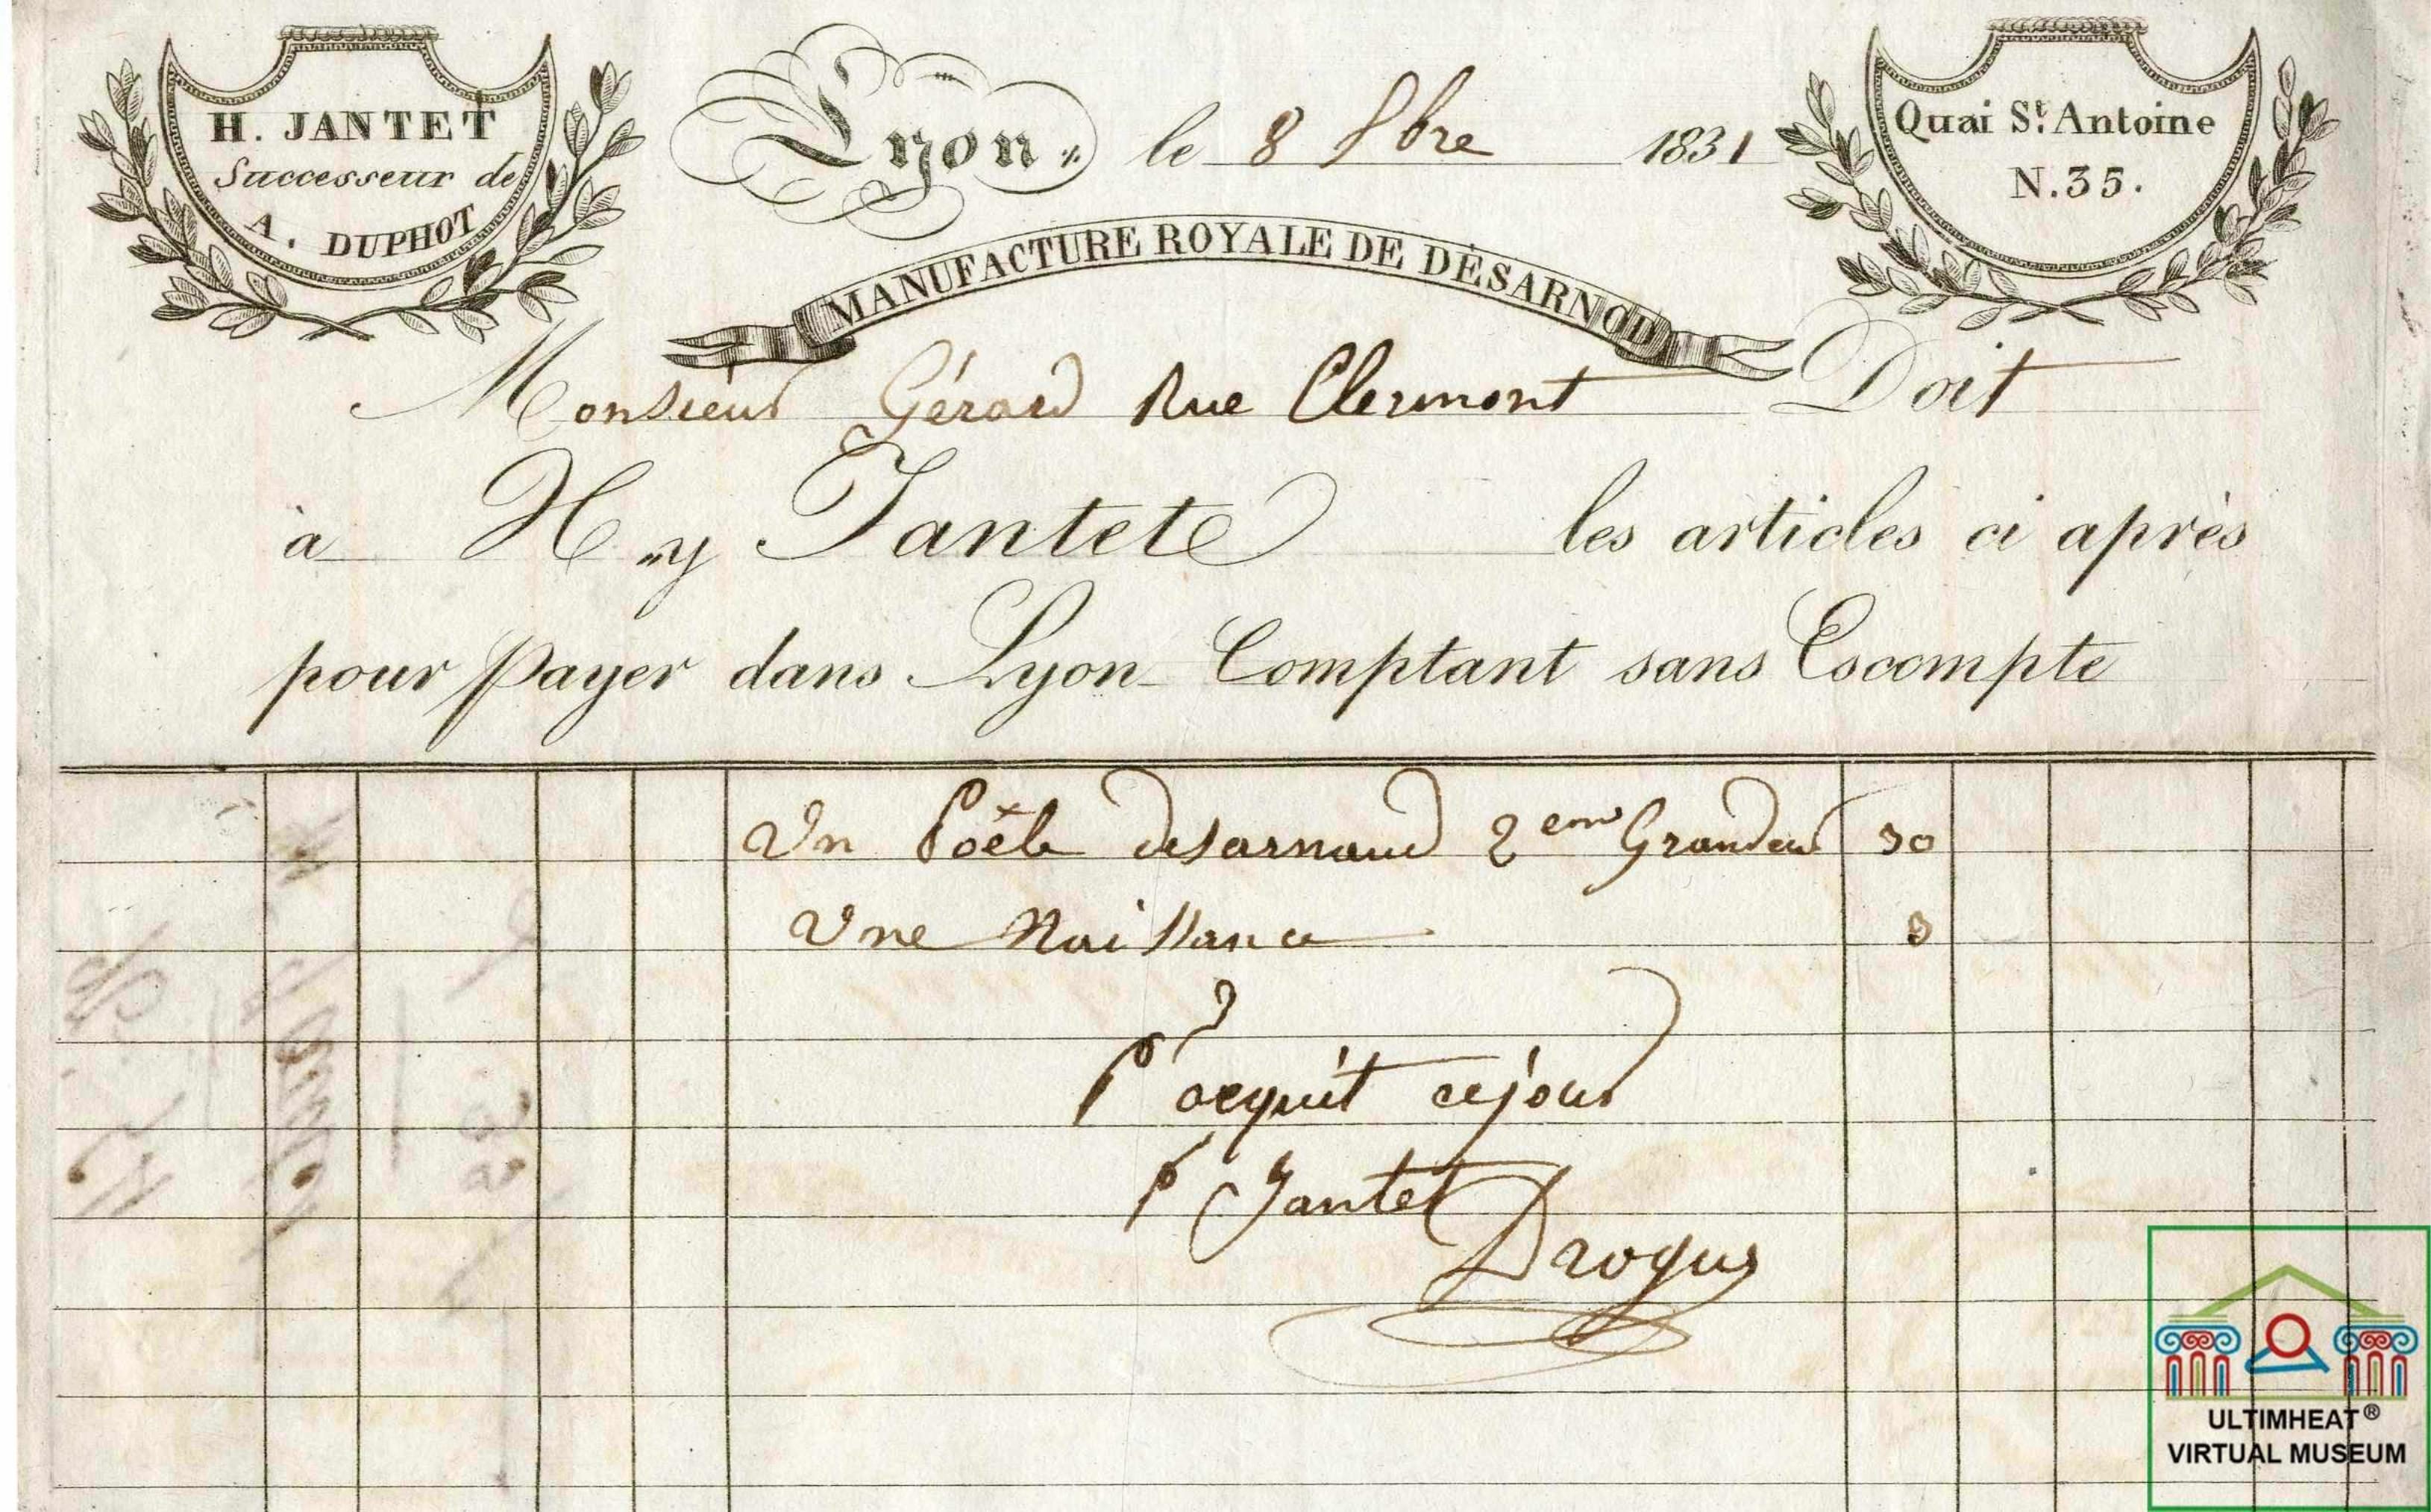 H. JANTET
Successeur de
A. DUPHOT
Lyon, le 8 8bre 1831
Quai St. Antoine
N.35.
MANUFACTURE ROYALE DE DÉSARNOD
Monsieur Gérard Rue Clermont Doit
à Hy Jantet les articles ci après
pour payer dans Lyon Comptant sans Escompte
Un Poële desarnaud 2eme Grandeur 30
Une Naissance 3
Pr acquit ce jour
pr Jantet
ULTIMHEAT®
VIRTUAL MUSEUM